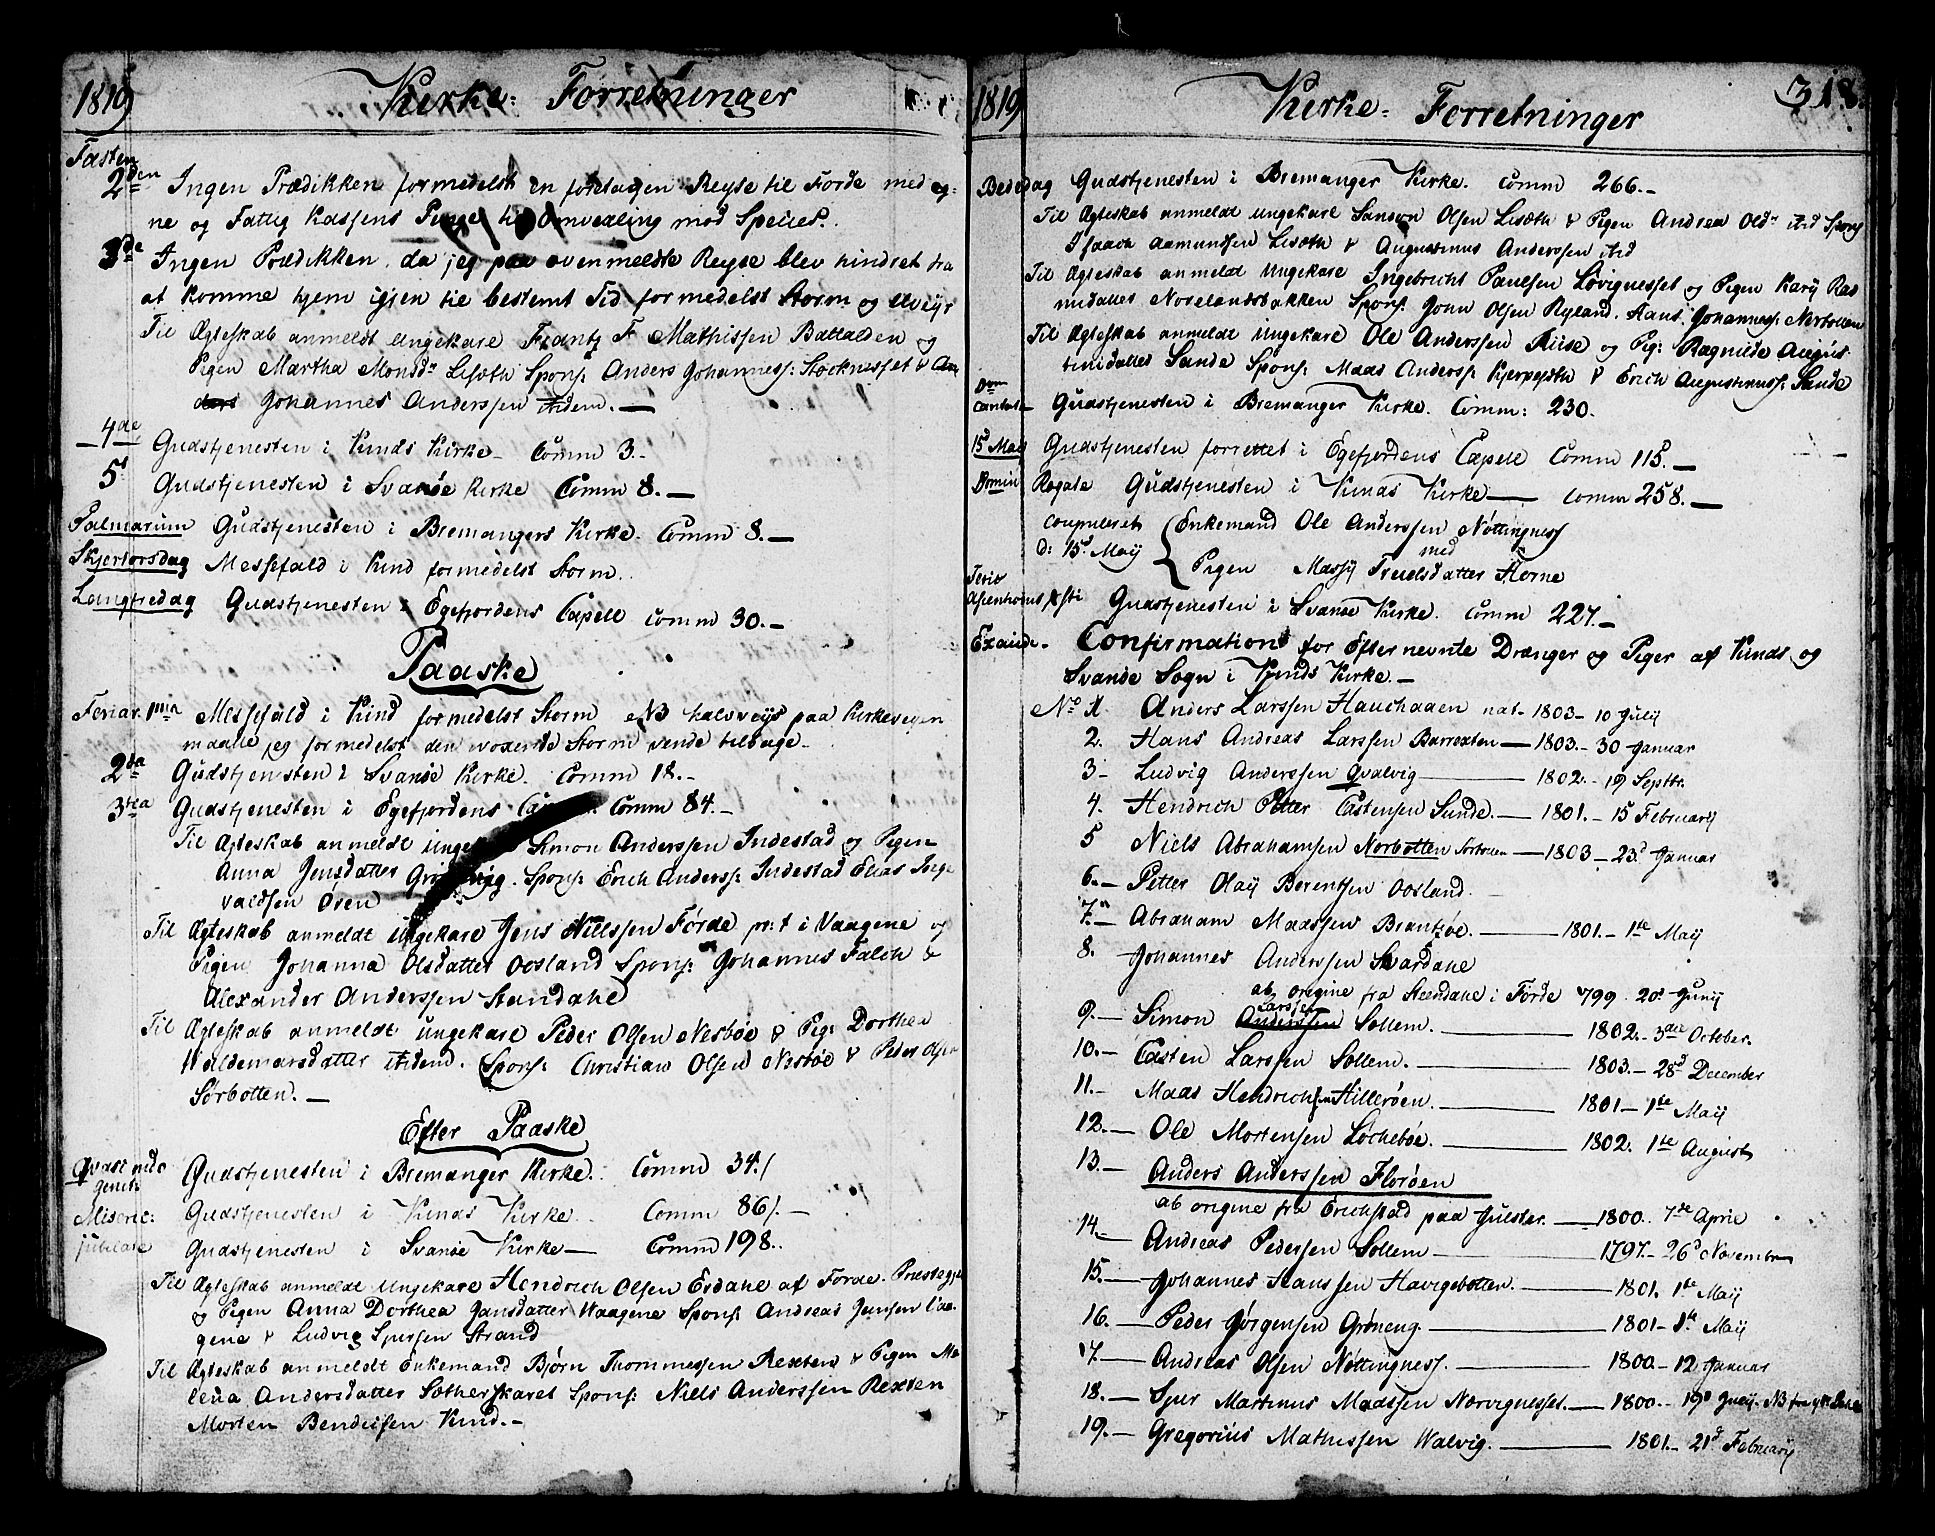 1819 Kirke-Forretninger
Fasten
2den Ingen Prædikken formedelst en foretagen Reyse til Førde med eg-
ne og Fattig Kassens Penge til Omvexling mod Specier.
3de Ingen Prædikken, da jeg paa ovenmeldte Reyse blev hindret fra
at komme hjem igjen til bestemt Tid formedelst Storm og Uveyr
Til Ægteskab anmeldt Ungekarl Frantz F Mathissen Battalden og
Pigen Martha Monsdr Lisæth Spons: Anders Johanness: Stocknesset &
Johannes Anderssen ibidem.
4de Gudstjenesten i Kinds Kirke Comm 3.
5t Gudstjenesten i Svanøe Kirke Comm 8.
Palmarum Gudstjenesten i Bremangers Kirke. Comm 8.
Skjertorsdag Messefald i Kind formedelst Storm.
Langfredag Gudstjenesten i Egefjordens Capell Comm 30.
Paaske
Feriar. 1ma Messefald i Kind formedelst Storm NB halvveys paa Kirkeveyen
maatte jeg formedelst den voxende Storm vende tilbage.
2da Gudstjenesten i Svanøe Kirke. Comm 18.
3tia Gudstjenesten i Egefjordens Comm 84.
Til Ægteskab anmeldt Simon Anderssen Indestad og Pigen
Anna Jensdatter Spons: Erich Anderss: Indestad Elias Ing-
valdsen Øren
Til Ægteskab anmeldt Ungekarl Jens Nillssen Førde pr: t i Vaagene og
Pigen Johanna Olsdatter Oosland Spons: Johannes Falch &
Alexander Anderssen Standahl
Til Ægteskab anmeldt Ungekarl Peder Olsen Nesbøe & Pig: Dorthea
Waldemarsdatter ibidem. Spons: Christian Olsen Nesbøe & Peder Olsen
Sørbotten.
Efter Paaske
Qvasi modo
genit: Gudstjenesten i Bremanger Kirke. Comm 34.
Miseric: Gudstjenesten i Kinds Kirke. Comm 86.
jubilate Gudstjenesten i Svanøe Kirke Comm 198.
Til Ægteskab anmeldt Ungekarl Hendrich Olsen Erdahl af Førde
og Pigen Anna Dorthea Jansdatter Waagene Spons: Andreas Jensen Vaa-
gene & Ludvig Strand
Til Ægteskab anmeldt Enkemand Bjørn Thommessen Rexten & Pigen Ma-
lena Andersdatter Sætherskaret Spons: Niels Anderssen Rexten
Morten Bendixsen Kind.
1819 Kirke-Forretninger 318
Bededag Gudstjenesten i Bremanger Kirke. Comm 266.
Til Ægteskab anmeldt Ungekarl Olsen Lisæth & Pigen Andrea Olsdr ibid Spons
Isaach Aamundsen Lisæth & Augustinus Anderssen ibid
Til Ægteskab anmeldt Ungekarl Ingebricht Paulsen Løvignesset og Pigen Kary Ras
musdatter Norelandsbakken Spons: John Olsen Ryland. Hans Johanness:
Til Ægteskab anmeldt Ungekarl Ole Anderssen Riise og Pig: Ragnilde Augus-
tinidatter Sande Spons: Maas Anderss: & Erich Augustinuss: Sande
Dom
Cantate Gudstjenesten i Bremanger Kirke. Comm: 230.
15d May Gudstjenesten forrettet i Egefjordens Capell Comm 115.
Domin Rogate Gudstjenesten i Kinds Kirke Comm 258.
Copuleret Enkemand Ole Anderssen Nøttingness
d: 15d May med
Pigen Massy Truelsdatter Horne
Feria
Asenhonis Xsti Gudstjenesten i Svanøe Kirke. Comm 227.
Exaudi. Confirmation for Efternevnte Drænger og Piger af Kinds og
Svanøe Sogn i Kinds Kirke.
No 1. Anders Larssen Hauchaaen nat. 1803 10 July
2. Hans Andreas Larssen Barrexten 1803. 30 Januar
3 Ludvig Anderssen Qvalvig 1802. 19 Septbr.
4. Hendrich Petter Castensen Sunde. 1801. 15 Februarij
5 Niels Abrahamsen Norbotten Sørbotten 1803 23d Januar
6. Petter Olaij Berentsen Oosland
7. Abraham Maassen Brantzøe. 1801. 1ste Maij
8. Johannes Anderssen Svardahl
ab origine fra Steendahl i Førde 799. 20d Junij
9. Simon Anderssen Larssen Sollem. 1802. 3die October.
10. Casten Larssen Sollem. 1803. 28d December
11. Maas Hendrichsen Hillerøen. 1801 1ste Maij
12. Ole Mortensen Løchebøe. 1802. 1ste August
13. Anders Anderssen Florøen
ab origine fra Erichstad paa Julster. 1800. 7de April
14. Andreas Pedersen Sollem 1797. 26d Novembr
15. Johannes Hanssen Havigebotten. 1801. 1ste Maij
16. Peder Jørgensen Grøneng. 1801 1ste Maij
17. Andreas Olsen Nøttingness. 1800 12 Januar
18. Siur Martinus Maassen Nærvignesset. 1800. 19d July. NB fra
19. Gregorius Mathissen Walvig. 1801. 21d Februarij